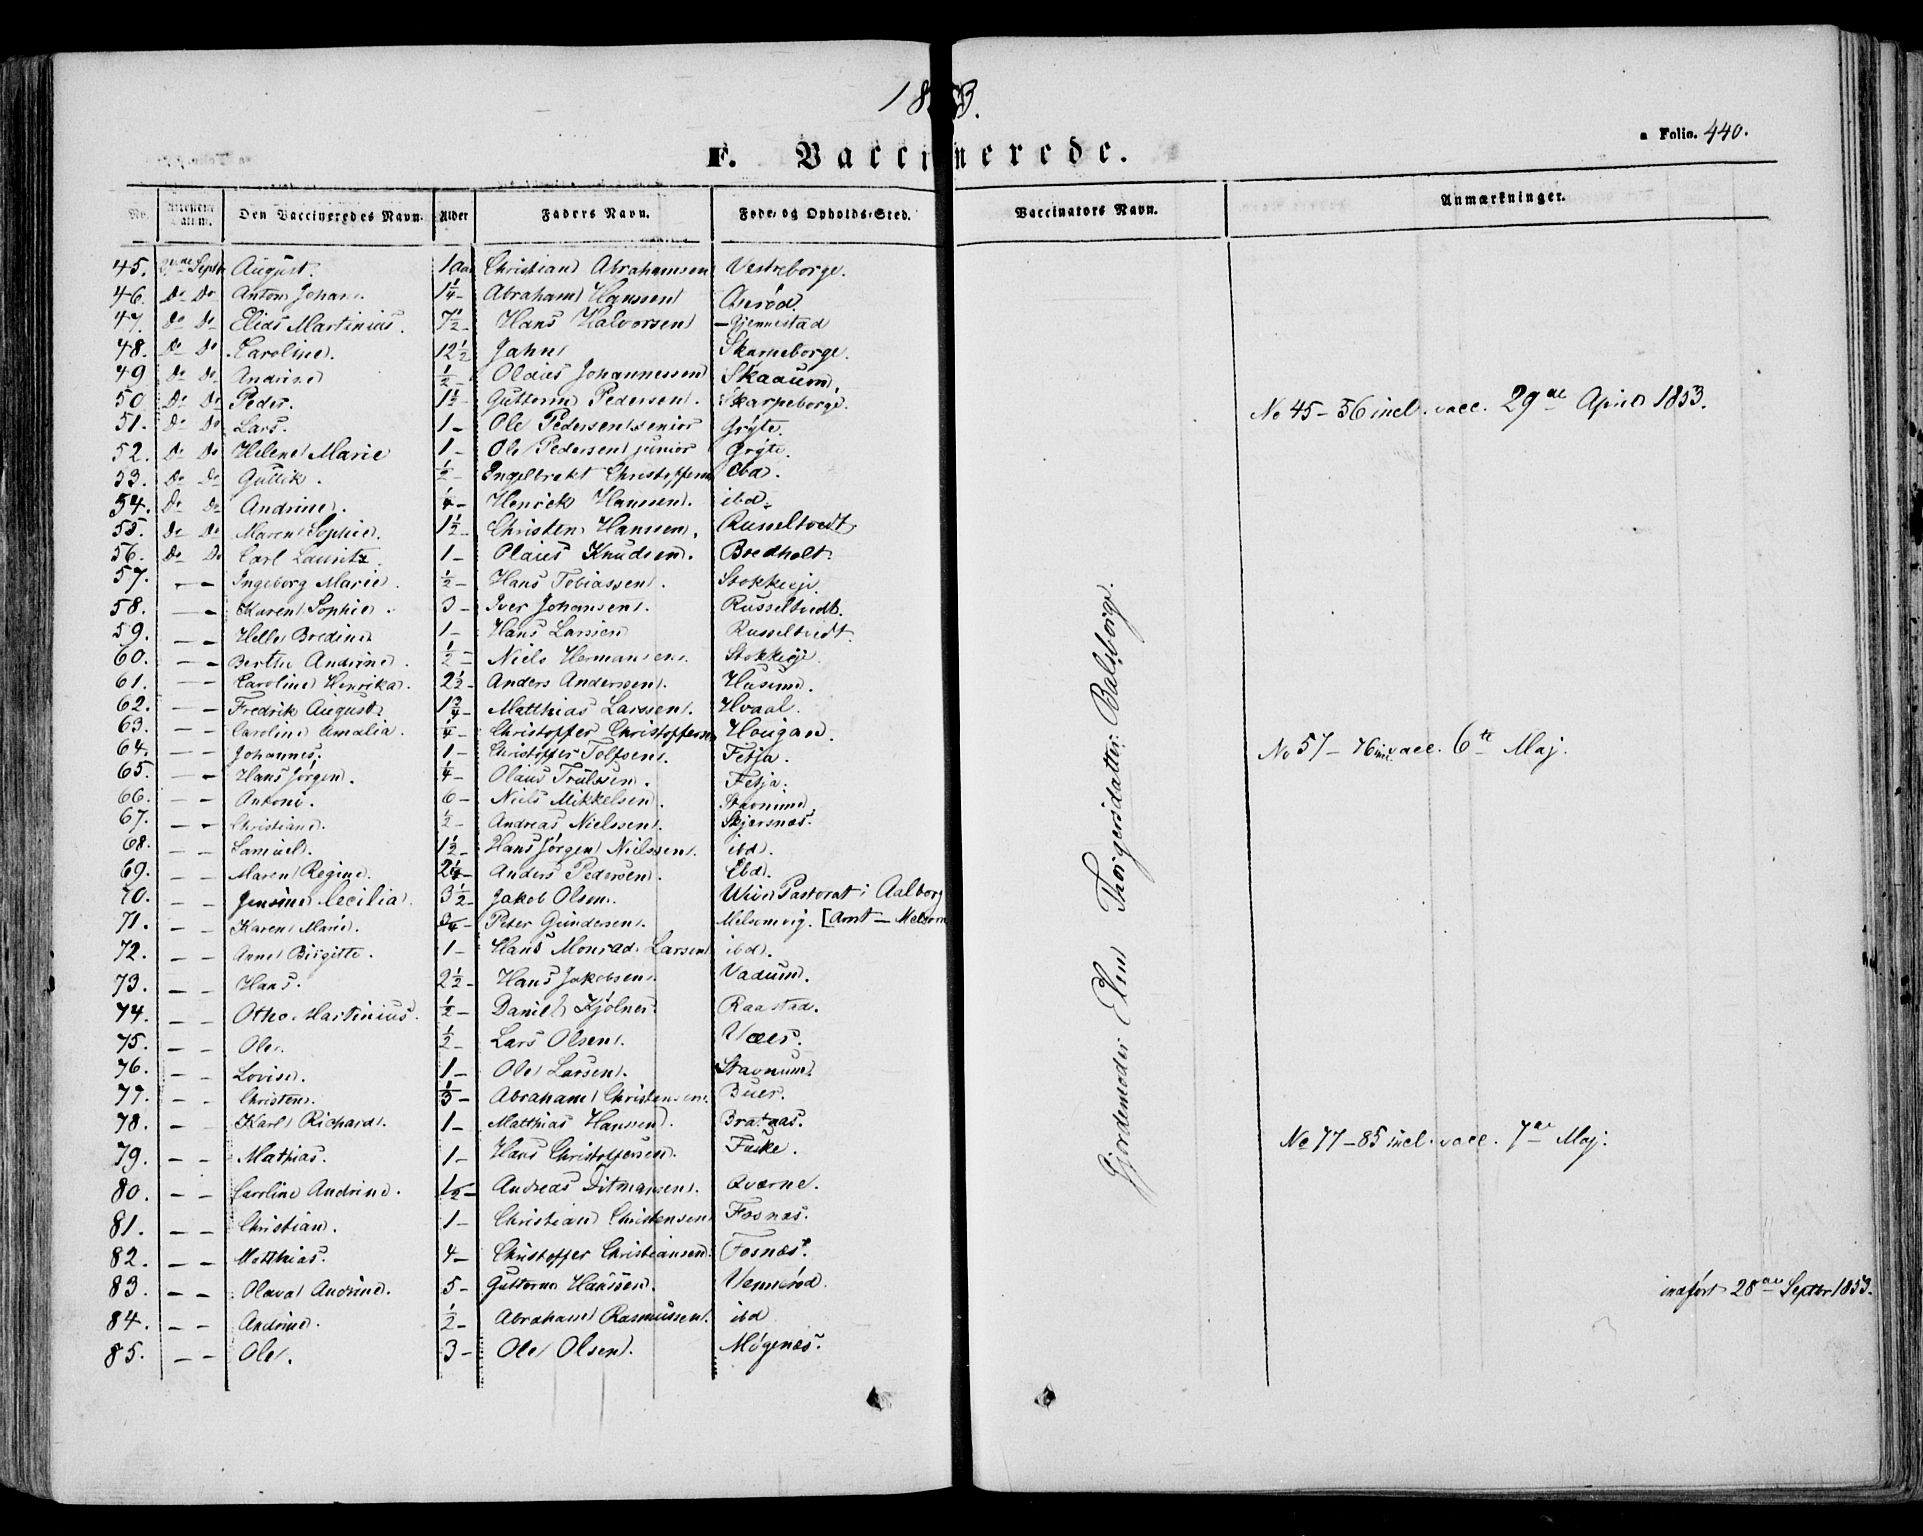 1853.
a Folio. 440.
F. Vaccinerede.
No. Attestens Datum. Den Vaccineredes Navn. Alder Faders Navn. Føde- og Opholds-Sted. Vaccinators Navn. Anmærkninger.
45. Septr August. 1 Aar Christian Abrahamsen Vestreborge.
46. Do Do Anton Johan. 1/4 - Abraham Hanssen Aurød.
47. Do Do Elias Martinius. 7 1/2 - Hans Halvorsen - Gjennestad
48. Do Do Caroline. 12 1/2 Jahn Skarpeborge.
49 Do Do Andrine 1/2 - Olaus Johannessen Skaaum.
50 Do Do Peder. 1 1/2 - Guttorm Pedersen. Skarpeborge.
51. Do Do Lars. 1 - Ole Pedersen senior Gryte.
52. Do Do Helene Marie 1 - Ole Pedersen junior Gryte.
53. Do Do Gullik. 1/2 - Engelbrekt Christoffersen Eba.
54. Do Do Andrine. 1/4 - Henrik Hanssen. ibd.
55. Do Do Maren Sophie. 1 1/2 - Christen Hanssen. Russeltvedt.
56. Do Do Carl Lauritz. 1 - Olaus Knudsen. Bredholt.
No 45 - 56 incl. vacc. 29de April 1853.
57. - - Ingeborg Marie. 1/2 - Hans Tobiassen. Stokkeeje.
58. - - Karen Sophie. 3 - Iver Johansen. Russeltvedt.
59. - - Helle Bredine 1 - Hans Larsen Russeltvedt.
60. - - Berthe Andrine. 1/2 - Niels Hermansen. Stokkeeje.
61. - - Caroline Henrika. 2 1/2 - Anders Andersen. Husum.
62. - - Fredrik August. 1 3/4 - Matthias Larssen. Hvaal.
63. - - Caroline Amalia. 1/4 - Christopher Christoffersen Hougan.
64. - - Johannes. 1 - Christoffer Tolfsen. Fetja.
65. - - Hans Jørgen. 1/4 - Olaus Trulssen. Fetja.
66. - - Antoni. 6 - Niels Mikkelsen. Stavnum.
67. - - Christiane. 1/2 - Andreas Nielssen. Skjersnæs.
68. - - Samuel. 1 1/2 - Hans Jørgen Nielssen. ibd.
69. - - Maren Regine. 2 1/4 - Anders Pedersen. Ebd.
70. - - Jensine Cecilia. 3 1/2 - Jakob Olsen. Pastorat i Aalborg
71. - - Karen Marie. 3/4 - Peter Gundersen. Melsomvig. [Amt - Melsom
72. - - Anne Birgitte. 1 - Hans Monrad Larsen ibd.
73. - - Hans. 2 1/2 - Hans Jakobsen. Vadum.
74. - - Otho Martinius. 1/2 - Daniel Kjølner Raastad.
75. - - Ole. 1/2 - Lars Olsen. Væes.
76. - - Lovise. 1 - Ole Larsen. Stavnum.
No 57 - 76 incl. vacc. 6te Maj.
77. - - Christen. 1/3 - Abraham Christensen. Buer.
78. - - Karl Richard. 1 - Matthias Hanssen. Bratnæs.
79. - - Mathias. 1 - Hans Christoffersen. Fuske.
80. - - Caroline Andrine. 1 1/2 - Andreas Ditmansen. Qværne.
81. - - Christian. 1 - Christian Christensen Fosnæs.
82. - - Matthias. 4 - Christoffer Christiansen. Fosnæs.
83. - - Olava Andrine. 5 - Guttorm Hanssen. Vennerød.
84. - - Andrine. 1/2 - Abraham Rasmussen. ibd
85. - - Ole. 3 - Ole Olsen. Møgenæs.
No 77 - 85 incl. vacc. 7de Maj.
indført 28de Septbr 1853.
Gjordemoder Elen Thorgersdatter Balsborge.